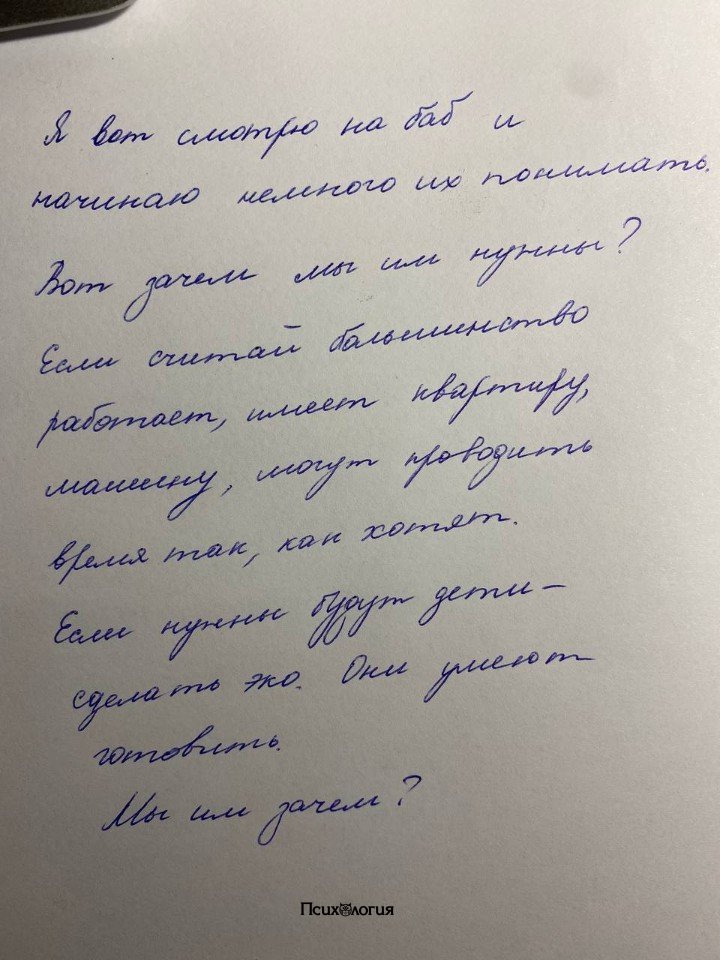 Я вот смотрю на баб и
начинаю немного их понимать.
Вот зачем мы им нужны?
Если считай большинство
работает, имеет квартиру,
машину, могут проводить
время так, как хотят.
Если нужны будут дети –
сделать эко. Они умеют
готовить.
Мы им зачем?
Психология